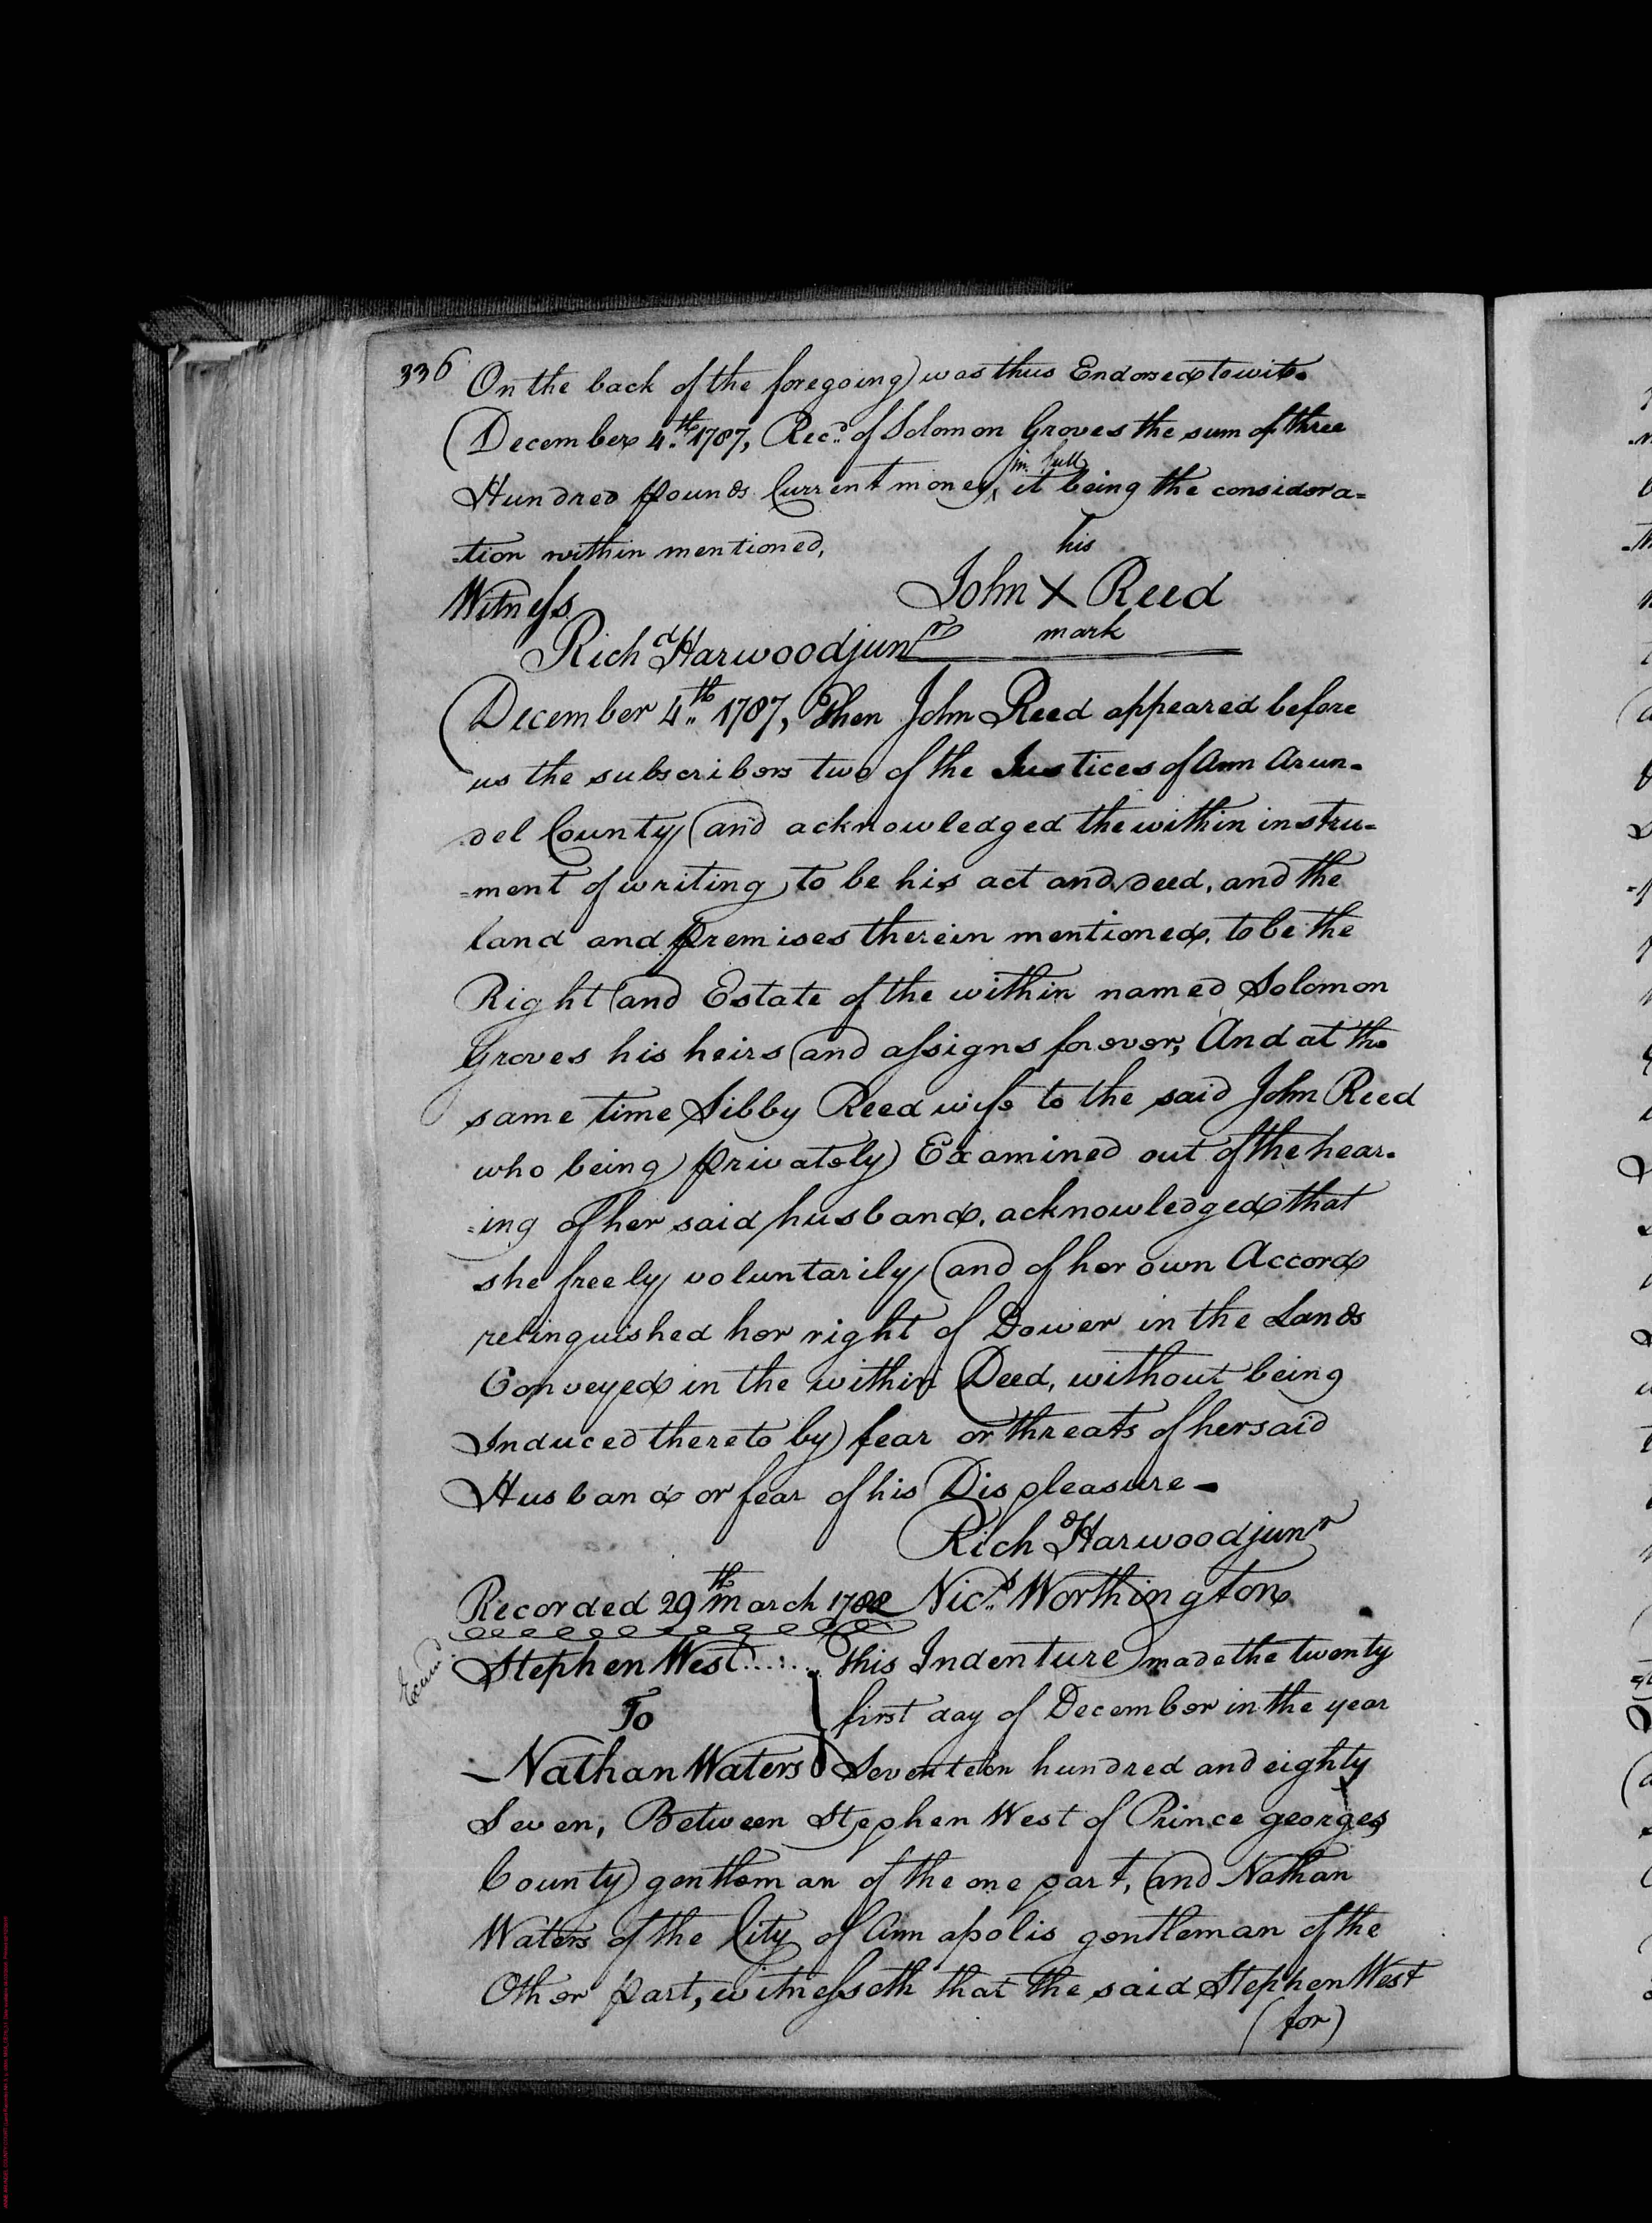 336
On the back of the foregoing was thus Endorsed to wit.
December 4.th 1787, Rec.d of Solomon Groves the sum of three
in full
Hundred pounds Current money, it being the considera=
-tion within mentioned,
his
Witness John X Reed
Rich.d Harwood junr mark
December 4.th 1787, Then John Reed appeared before
us the subscribers two of the Justices of Ann Arun-
del County and acknowledged the within instru-
=ment of writing to be his act and deed, and the
land and premises therein mentioned, to be the
Right and Estate of the within named Solomon
Groves his heirs and assigns forever, And at the
same time Sibby Reed wife to the said John Reed
who being privately Examined out of the hear-
-ing of her said husband, acknowledged that
she freely voluntarily and of her own Accord
relinquished her right of Dower in the Lands
Conveyed in the within Deed, without being
Induced thereto by fear or threats of her said
Husband or fear of his Displeasure -
Rich.d Harwood junr
Recorded 29th March 1788 Nic.s Worthington
Examd.
Stephen West...... This Indenture made the twenty
To first day of December in the year
- Nathan Waters Seventeen hundred and eighty
Seven, Between Stephen West of Prince georges
County gentleman of the one part, and Nathan
Waters of the City of Annapolis gentleman of the
Other part, witnesseth that the said Stephen West
(for)